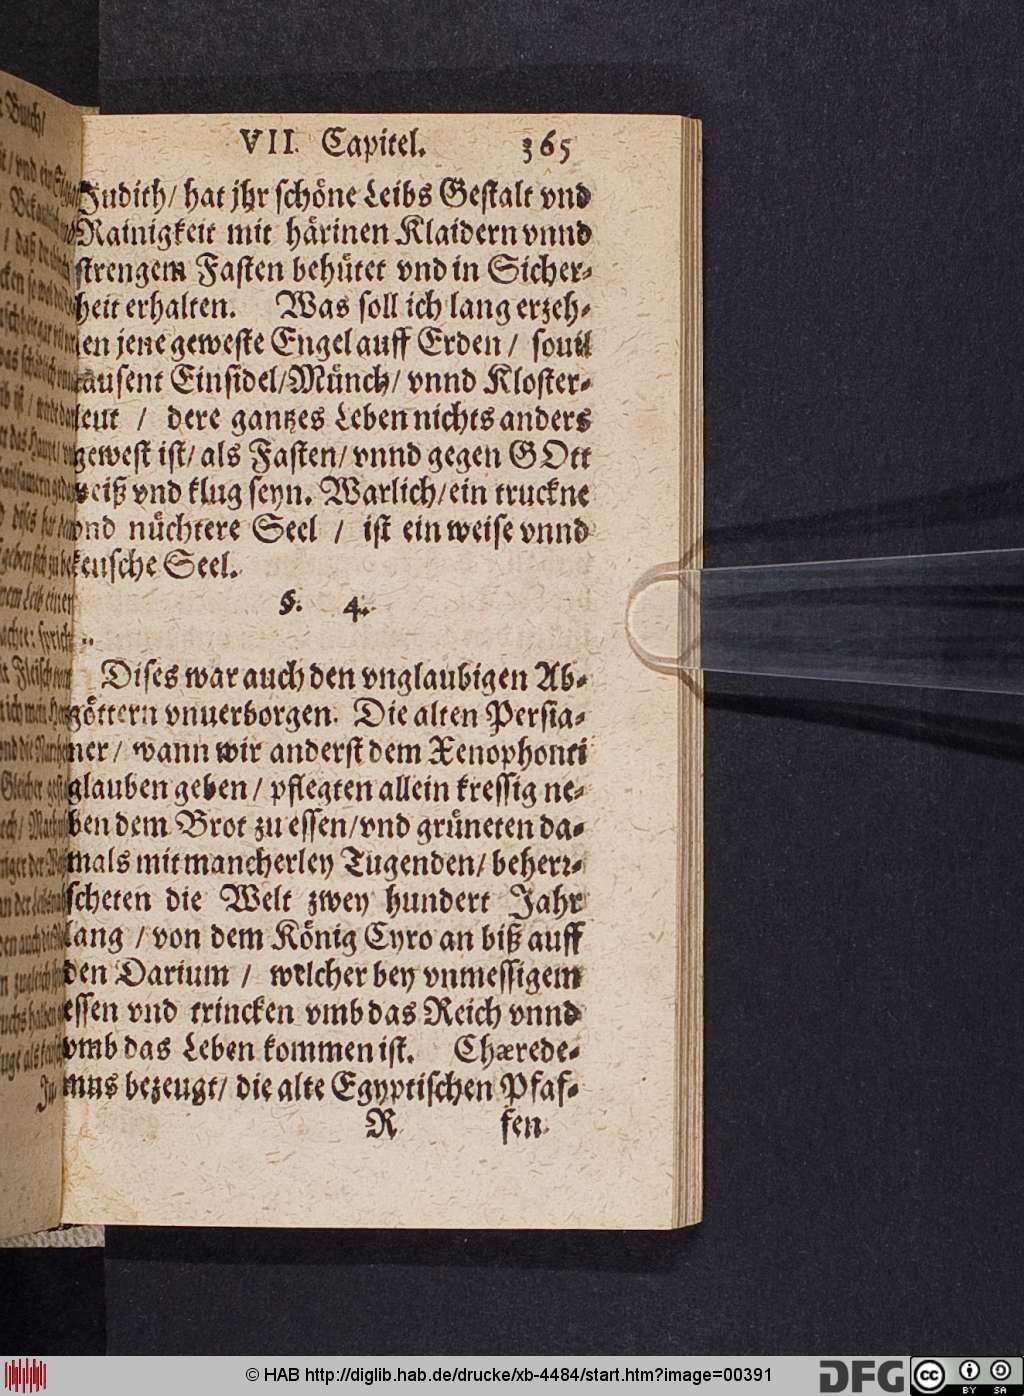 VII. Capitel. 365
Judith/ hat jhr schöne Leibs Gestalt vnd
Rainigkeit mit härinen Klaidern vnnd
strengem Fasten behütet vnd in Sicher-
heit erhalten. Was soll ich lang erzeh-
len jene geweste Engel auff Erden / souil
tausent Einsidel/Münch/ vnnd Kloster-
leut / dere gantzes Leben nichts anders
gewest ist/ als Fasten/ vnnd gegen GOtt
weiß vnd klug seyn. Warlich/ein truckne
vnd nüchtere Seel / ist ein weise vnnd
keusche Seel.
§. 4.
Dises war auch den vnglaubigen Ab-
göttern vnuerborgen. Die alten Persia-
ner/ wann wir anderst dem Xenophonti
glauben geben/ pflegten allein kressig ne-
ben dem Brot zu essen/vnd grüneten da-
mals mit mancherley Tugenden/ beherr-
scheten die Welt zwey hundert Jahr
lang / von dem König Cyro an biß auff
den Darium / welcher bey vnmessigem
essen vnd trincken vmb das Reich vnnd
vmb das Leben kommen ist. Chærede-
mus bezeugt/ die alte Egyptischen Pfaf-
R fen
© HAB http://diglib.hab.de/drucke/xb-4484/start.htm?image=00391
DFG
cc BY SA